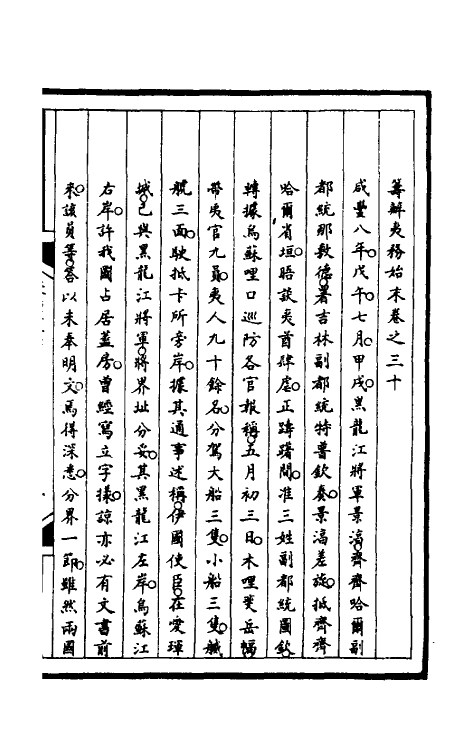 籌辦夷務始末卷之三十
咸豐八年戊午七月甲戌黑龍江將軍景淳齊齊哈爾副
都統那敦德署吉林副都統特普欽奏景淳差旋抵齊齊
哈爾省垣晤談夷酋肆虐正躊躇間准三姓副都統圖欽
轉據烏蘇哩口巡防各官報稱五月初三日木哩斐岳幅
帶夷官九員夷人九十餘名分駕大船三隻小船三隻艤
艍三面駛抵卡所旁岸據其通事述稱伊國使臣在愛琿
城已與黑龍江將軍將界址分妥其黑龍江左岸烏蘇江
右岸許我國占居蓋房曾經寫立字樣諒亦必有文書前
來該員等答以未奉明文焉得深悉分界一節雖然兩國